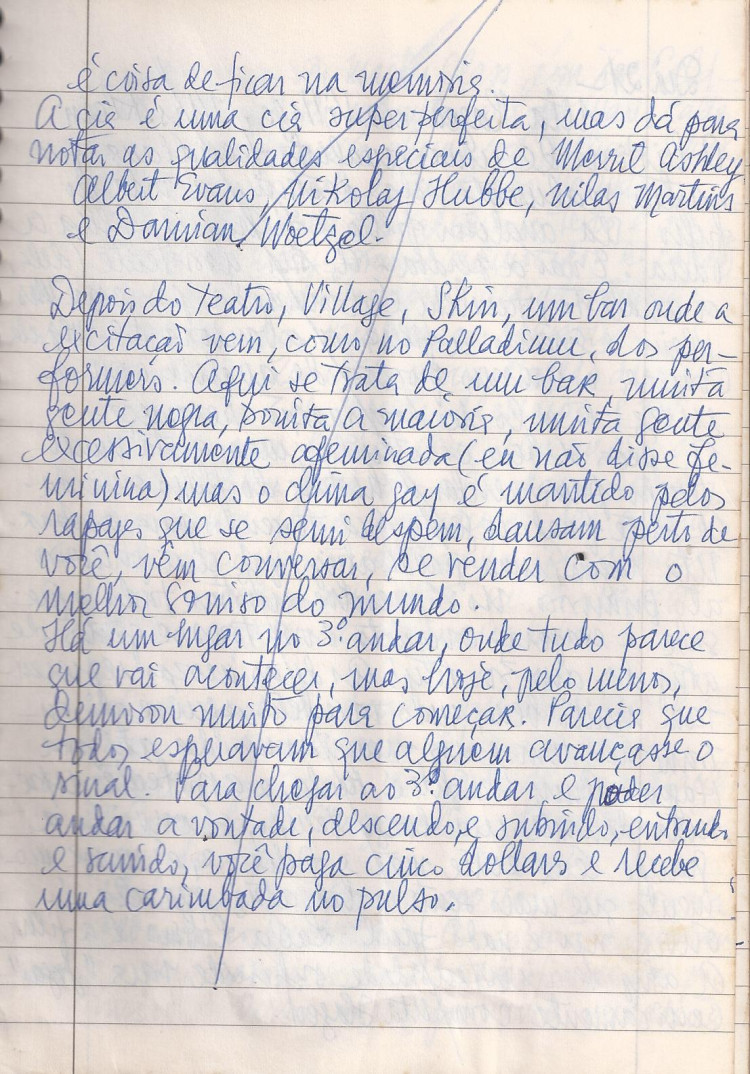 é coisa de ficar na memória.
A cia é uma cia superperfeita, mas dá para
notar as qualidades especiais de Merril Ashley
Albert Evans, Nikolaj Hubbe, Nilas Martins
e Damian Woetzel.
Depois do Teatro, Village, Skin, um bar onde a
excitação vem, como no Palladium, dos per-
formers. Aqui se trata de um bar, muita
gente negra, bonita a maioria, muita gente
excessivamente afeminada (eu não disse fe-
minina) mas o clima gay é mantido pelos
rapazes que se semi despem, dansam perto de
você, vêm conversar, se vender com o
melhor sorriso do mundo.
Há um lugar no 3º andar, onde tudo parece
que vai acontecer, mas hoje, pelo menos,
demorou muito para começar. Parecia que
todos esperavam que alguém avançasse o
sinal. Para chegar ao 3º andar e poder
andar a vontade, descendo, e subindo, entrando
e saindo, você paga cinco dollars e recebe
uma carimbada no pulso.